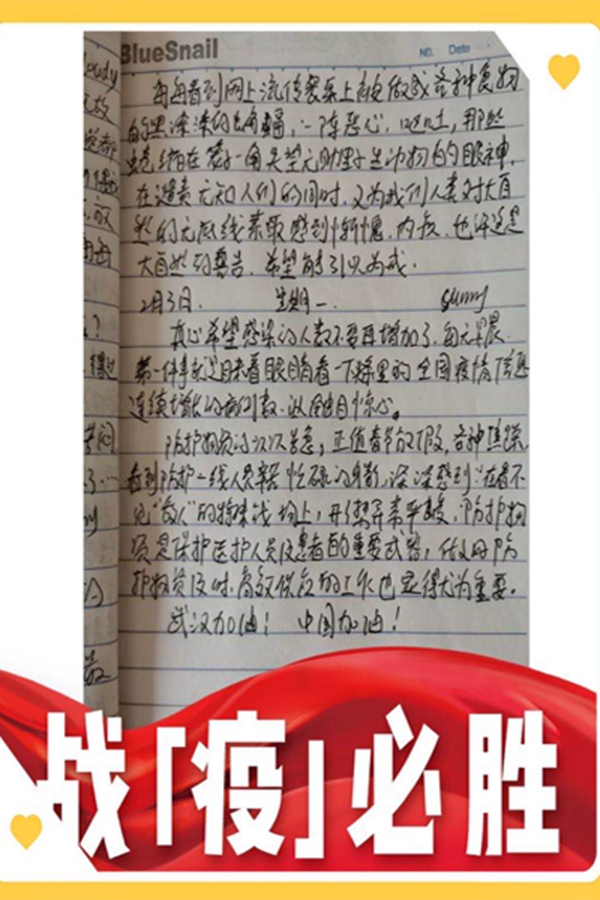 BlueSnail
No. Date
每每看到网上流传餐桌上被做成各种食物
的黑漆漆的蝙蝠,一阵恶心,呕吐,那些
蜷缩在笼子一角失望无助野生动物的眼神,
在谴责无知人们的同时,又为我们人类对大自
然的无底线索取感到惭愧,内疚,也许这是
大自然的警告,希望能引以为戒.
2月3日. 星期一. sunny
真心希望感染的人数不要再增加了,每天早晨
第一件事就是睁着眼睛看一下 全国疫情信息
连续增长的病例数,从 触目惊心。
防护物资的次次告急,正值春节放假,各种焦躁,
看到防护一线人员辛苦忙碌的身影,深深感到:在看不
见"敌人"的特殊战场上, 防护物
资是保护医护人员及患者的重要武器,做好防
护物资及时、高效供应的工作也显得尤为重要。
武汉加油! 中国加油!
cloudy
?
战「疫」必胜